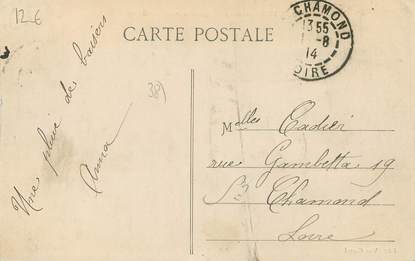 12€
CARTE POSTALE
CHAMOND
13 55
-8
14
OIRE
Une pluie de baisers
Anna
Melles Cadier
rue Gambetta 19
St Chamond
Loire